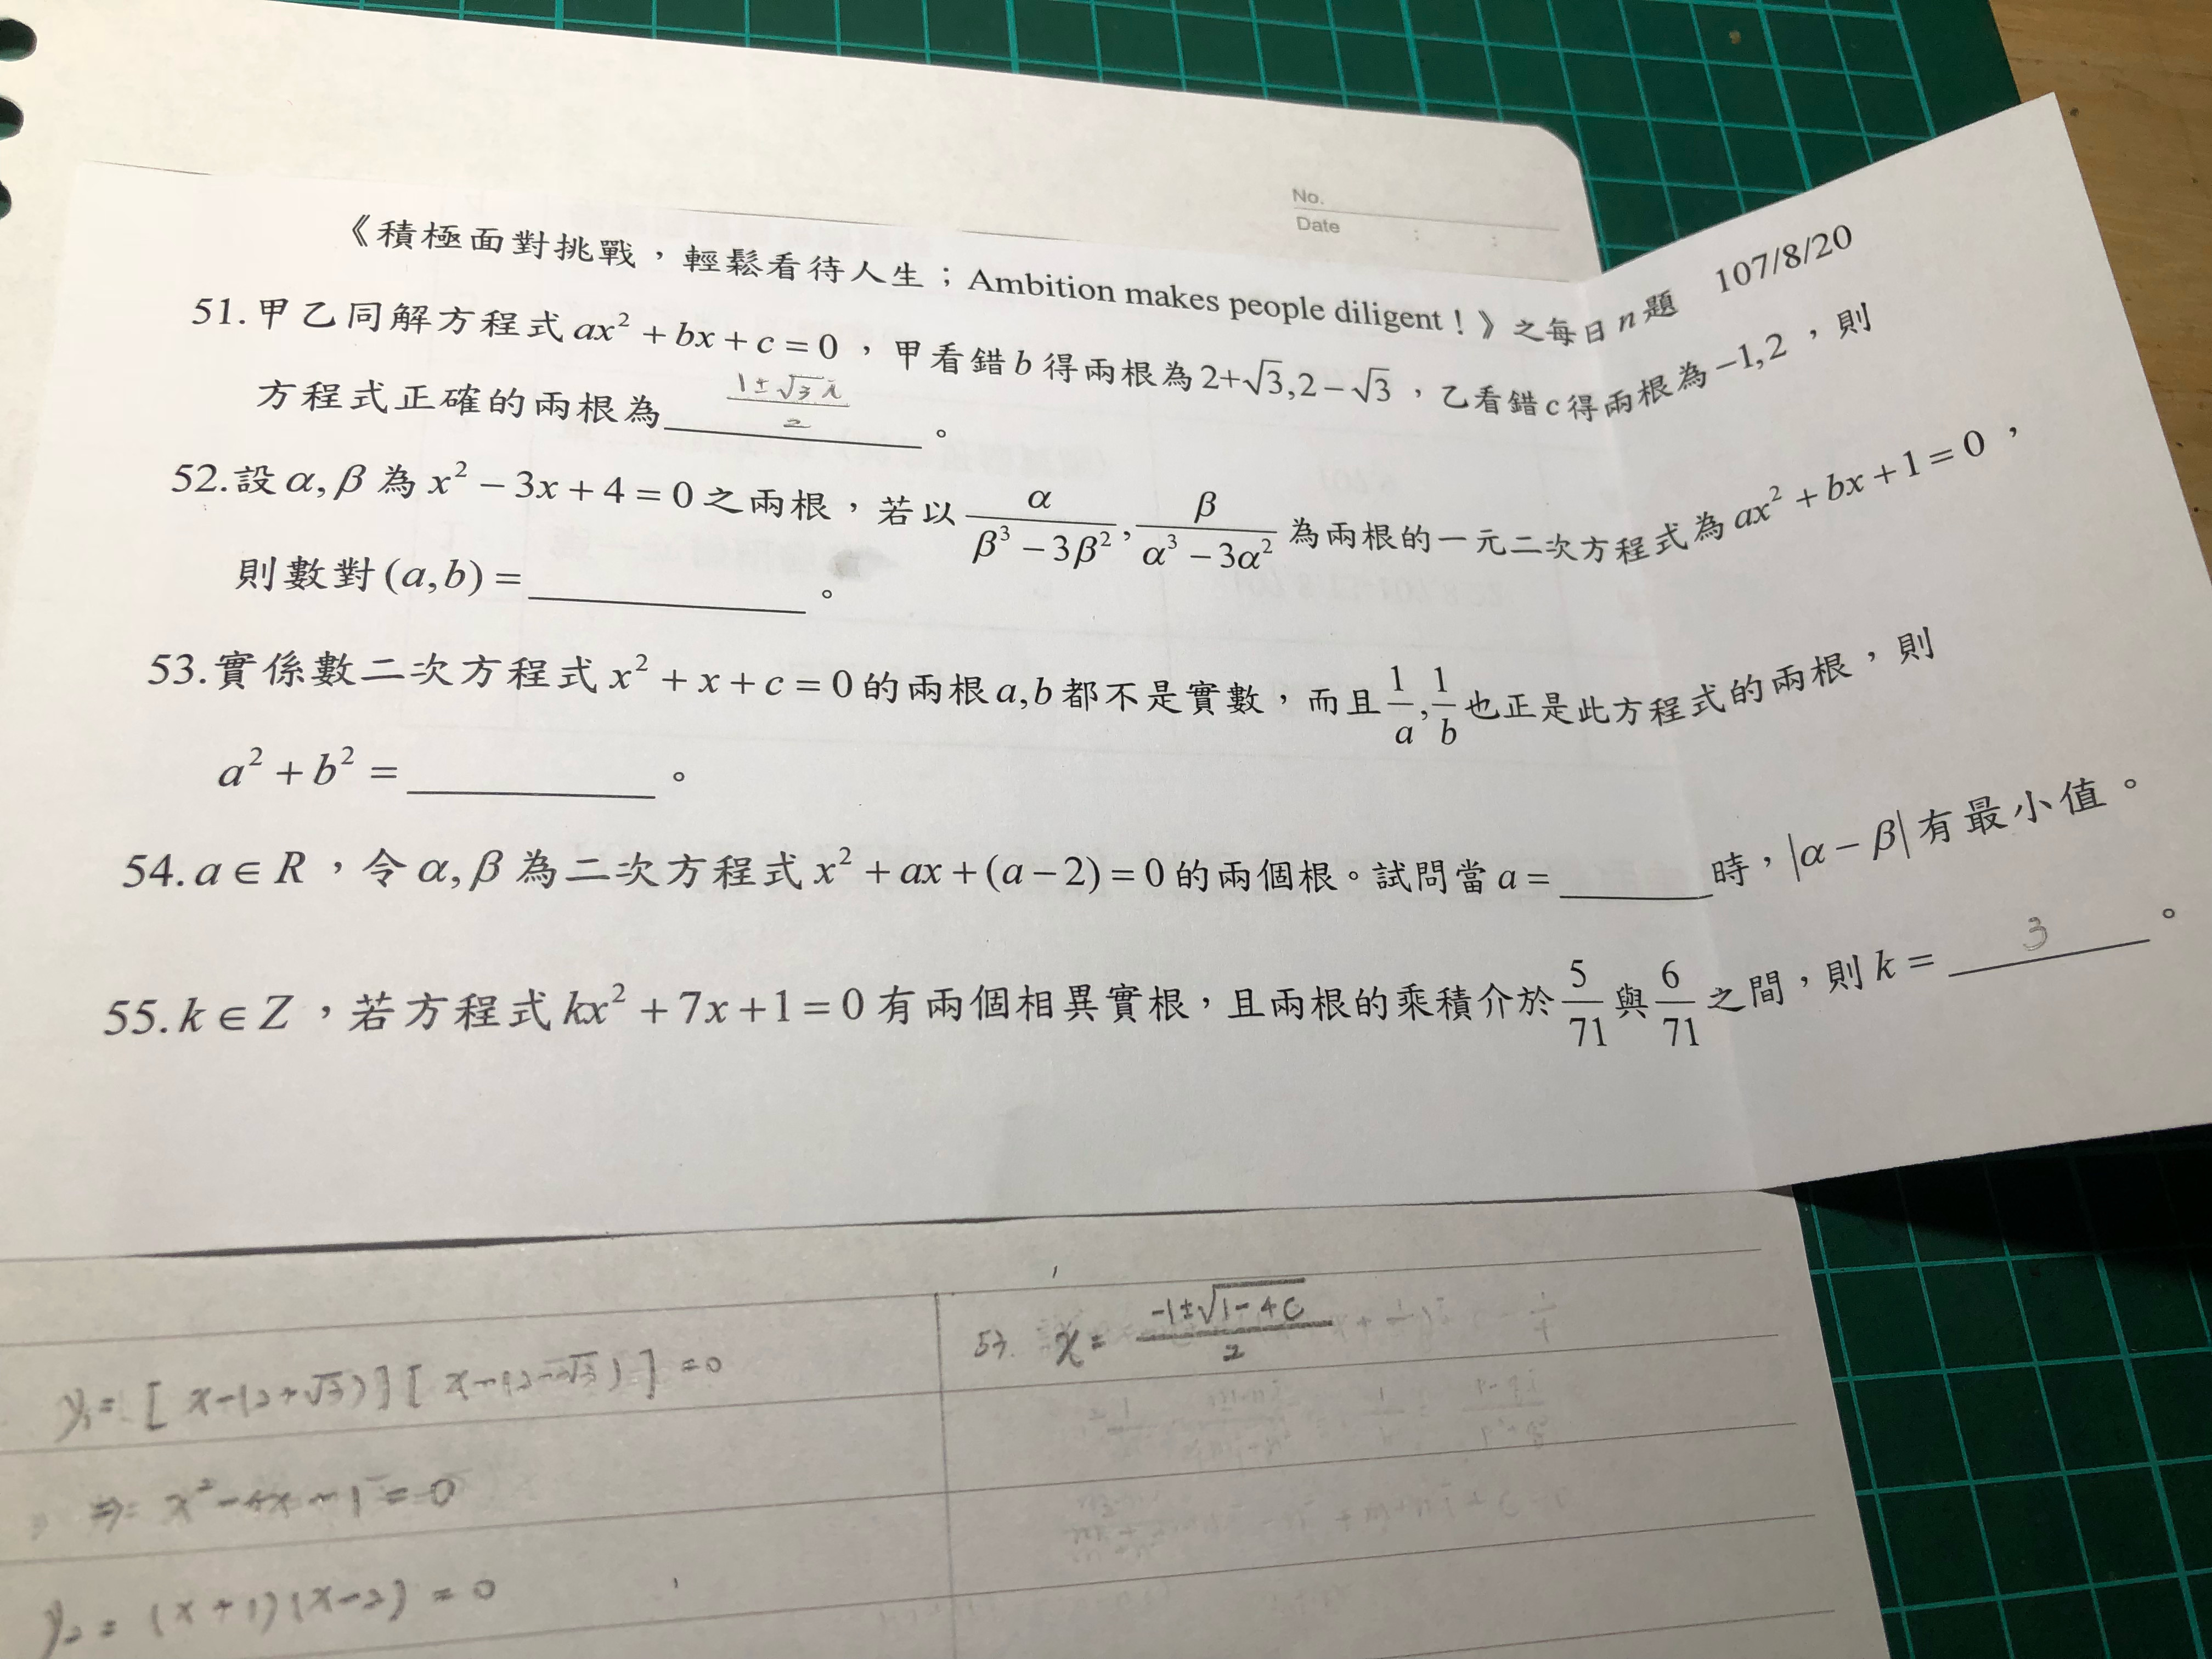 No.
Date : :
《積極面對挑戰，輕鬆看待人生；Ambition makes people diligent！》之每日n題 107/8/20
51.甲乙同解方程式ax²+bx+c=0，甲看錯b得兩根為2+√3,2−√3，乙看錯c得兩根為−1,2，則
方程式正確的兩根為 (1±√3i)/2 。
52.設α,β為x²−3x+4=0之兩根，若以α/(β³−3β²),β/(α³−3α²)為兩根的一元二次方程式為ax²+bx+1=0，
則數對(a,b)=________。
53.實係數二次方程式x²+x+c=0的兩根a,b都不是實數，而且1/a,1/b也正是此方程式的兩根，則
a²+b²=________。
54.a∈R，令α,β為二次方程式x²+ax+(a−2)=0的兩個根。試問當a=________時，|α−β|有最小值。
55.k∈Z，若方程式kx²+7x+1=0有兩個相異實根，且兩根的乘積介於5/71與6/71之間，則k= 3 。
y₁=[x-(2+√3)][x-(2-√3)]=0
⇒ x²-4x-1=0
y₂=(x+1)(x-2)=0
53. x=(-1±√(1-4C))/2